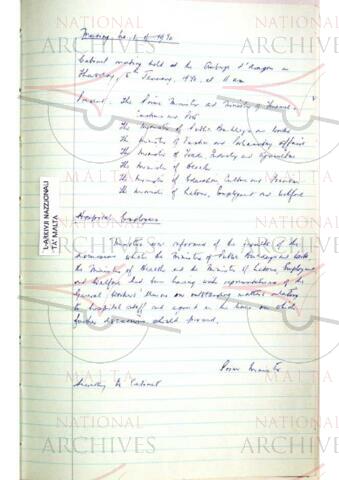 Meeting No. 1 of 1970
Cabinet meeting held at the Auberge d'Aragon on
Thursday, January, 1970, at 11 am
Present: The Prime Minister and Minister of
and
The Minister of Public Buildings and Works
The Minister of Justice and Parliamentary Affairs
The Minister of Trade, Industry and Agriculture
The Minister of Health
The Minister of Education, Culture and Tourism
The Minister of Labour, Employment and Welfare
Hospital Employees
Ministers were informed of the results of the
discussions which the Minister of Public Buildings and Works,
the Minister of Health and the Minister of Labour, Employment
and Welfare had been having with representatives of the
General Workers' Union on outstanding matters relating
to hospital staff and agreed on the lines on which
further discussions should proceed.
Prime Minister
Secretary to Cabinet
L-ARKIVJI NAZZJONALI
TA' MALTA
NATIONAL
ARCHIVES
MALTA